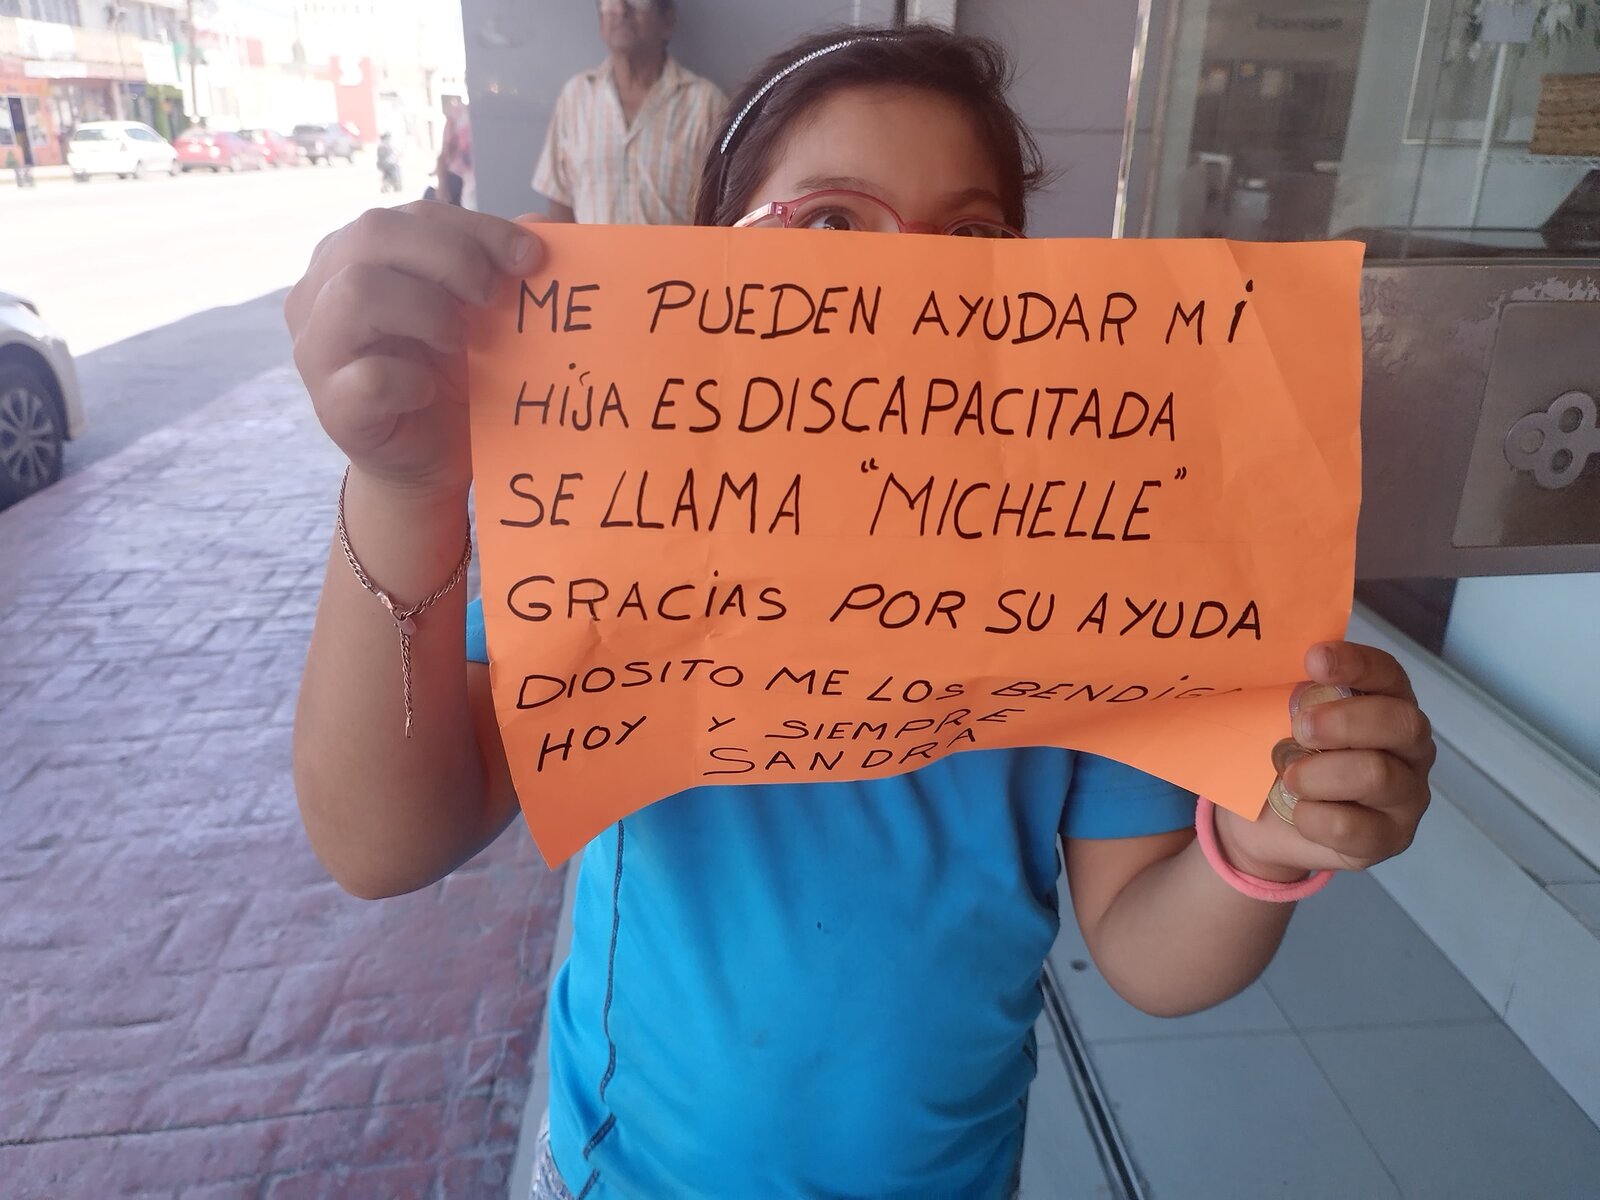 ME PUEDEN AYUDAR Mi
HiJA ES DISCAPACITADA
SE LLAMA "MICHELLE"
GRACiAS POR SU AYUDA
DIOSITO ME LOS BENDiGA
HOY Y SIEMPRE
SANDRA